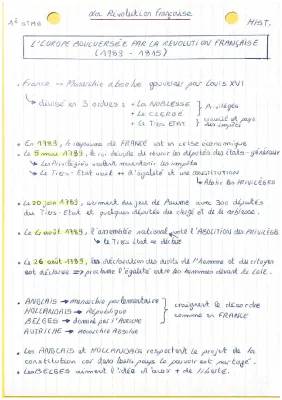 La Révolution Française
1e STMG
HIST.
L'EUROPE BOULEVERSÉE PAR LA RÉVOLUTION FRANÇAISE
(1789 - 1815)
• France → Monarchie absolue gouvernée par Louis XVI
↳ divisé en 3 ordres : + La NOBLESSE
+ Le CLERGÉ
+ Le Tiers ETAT
Privilégiés
• En 1789, le royaume de FRANCE est en crise économique
• Le 5 mai 1789, le roi décide de réunir les députés des états-généraux
↳ Les Privilégiés veulent
↳ Le Tiers-Etat veut + d'égalité et une CONSTITUTION
↳ Abolir les PRIVILÈGES
• Le 20 juin 1789, serment du jeu de Paume avec 300 députés
du Tiers-Etat et quelques députés du clergé et de la noblesse.
• Le 4 août 1789, l'assemblée nationale vote l'ABOLITION des PRIVILÈGES
↳ le Tiers Etat
• Le 26 août 1789, la déclaration des droits de l'Homme et du citoyen
est déclarée → proclame l'égalité entre les hommes devant la Loi.
• ANGLAIS → monarchie parlementaire
HOLLANDAIS → République
BELGES → dominé par l'Autriche
AUTRICHE → Monarchie Absolue
craignent le désordre
comme en FRANCE
• Les ANGLAIS et HOLLANDAIS respectent le projet de la
constitution car dans leurs pays le pouvoir est partagé.
• Les BELGES aiment l'idée d'avoir + de liberté.